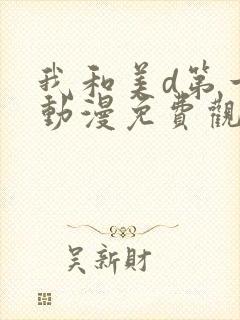 我和美d第一
動漫免費觀
吴新財